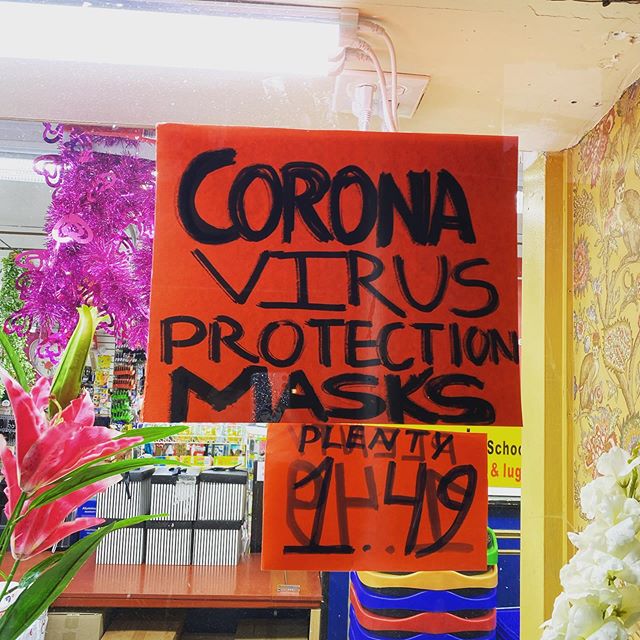 CORONA
VIRUS
PROTECTION
MASKS
PLENTY
1.49
School
& lug